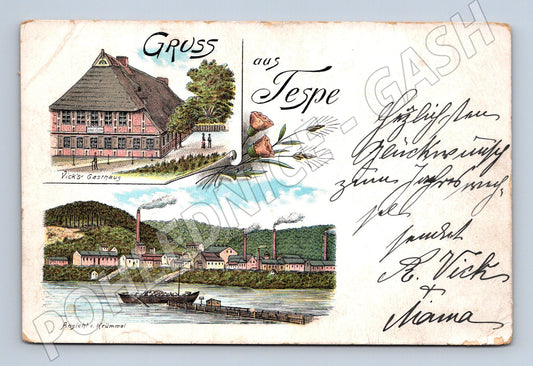 Gruss
aus
Tespe
Vick's Gasthaus
Ansicht v. Krümmel
Herzlichsten
Glückwunsch
zum Jahreswech
sel
sendet
A. Vick
+
Mama
POHLEDNICE - GASH